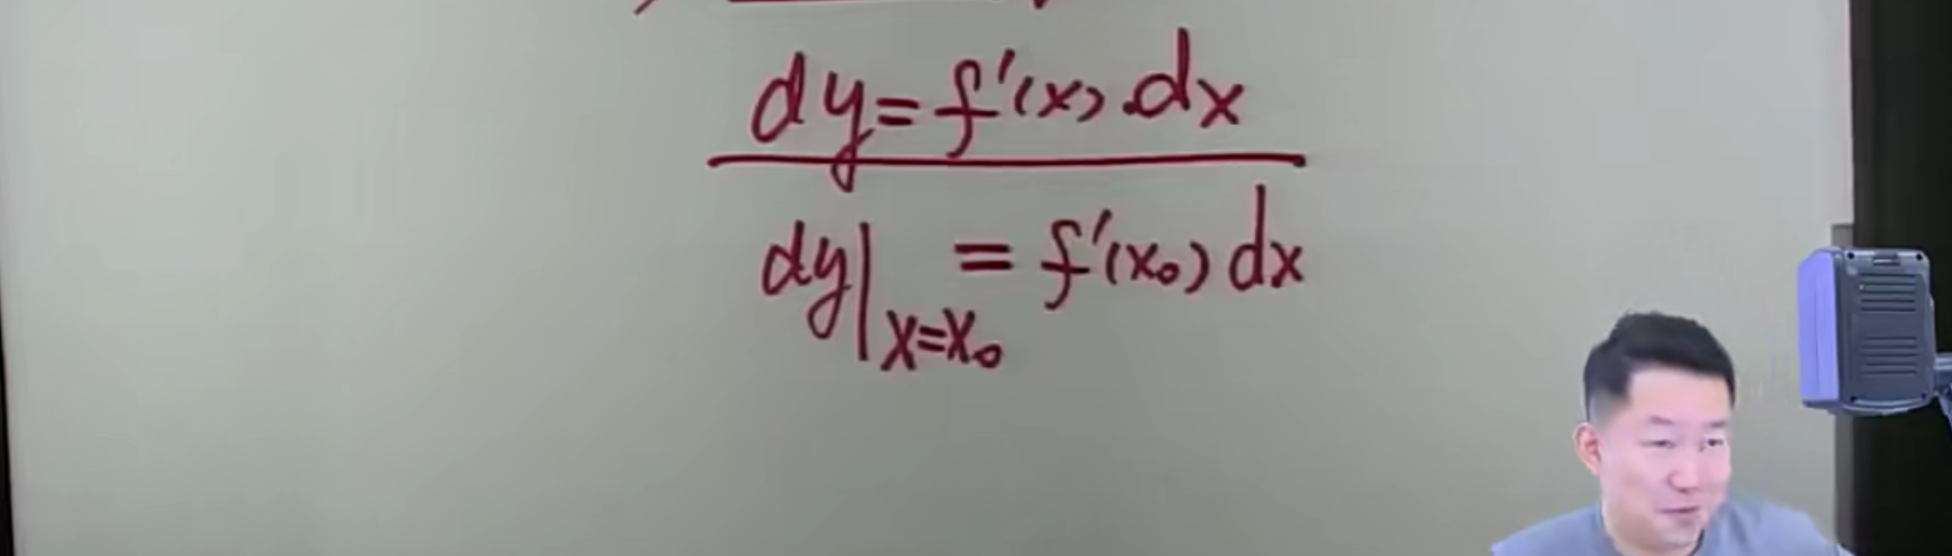 dy = f'(x) · dx
dy|x=x₀ = f'(x₀) dx